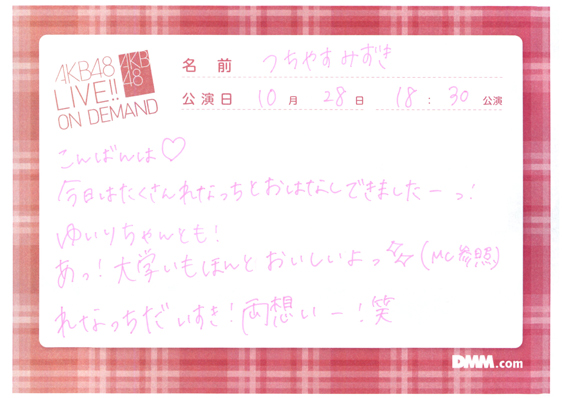 AKB48
LIVE!!
ON DEMAND
AKB
48
名前 つちやすみずき
公演日 10月 28日 18:30 公演
こんばんは♡
今日はたくさんれなっちとおはなしできましたーっ!
ゆいりちゃんとも!
あっ!大学いもほんとおいしいよっ(MC参照)
れなっちだいすき!両想いー!笑
DMM.com